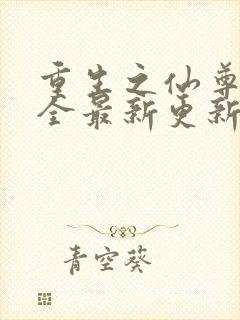 重生之仙尊
全最新更新
青空葵